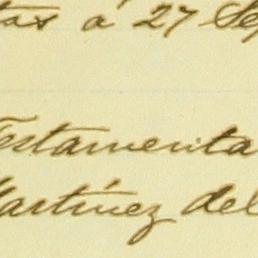 tas á 27 Sep
Testamenta
Martínez del